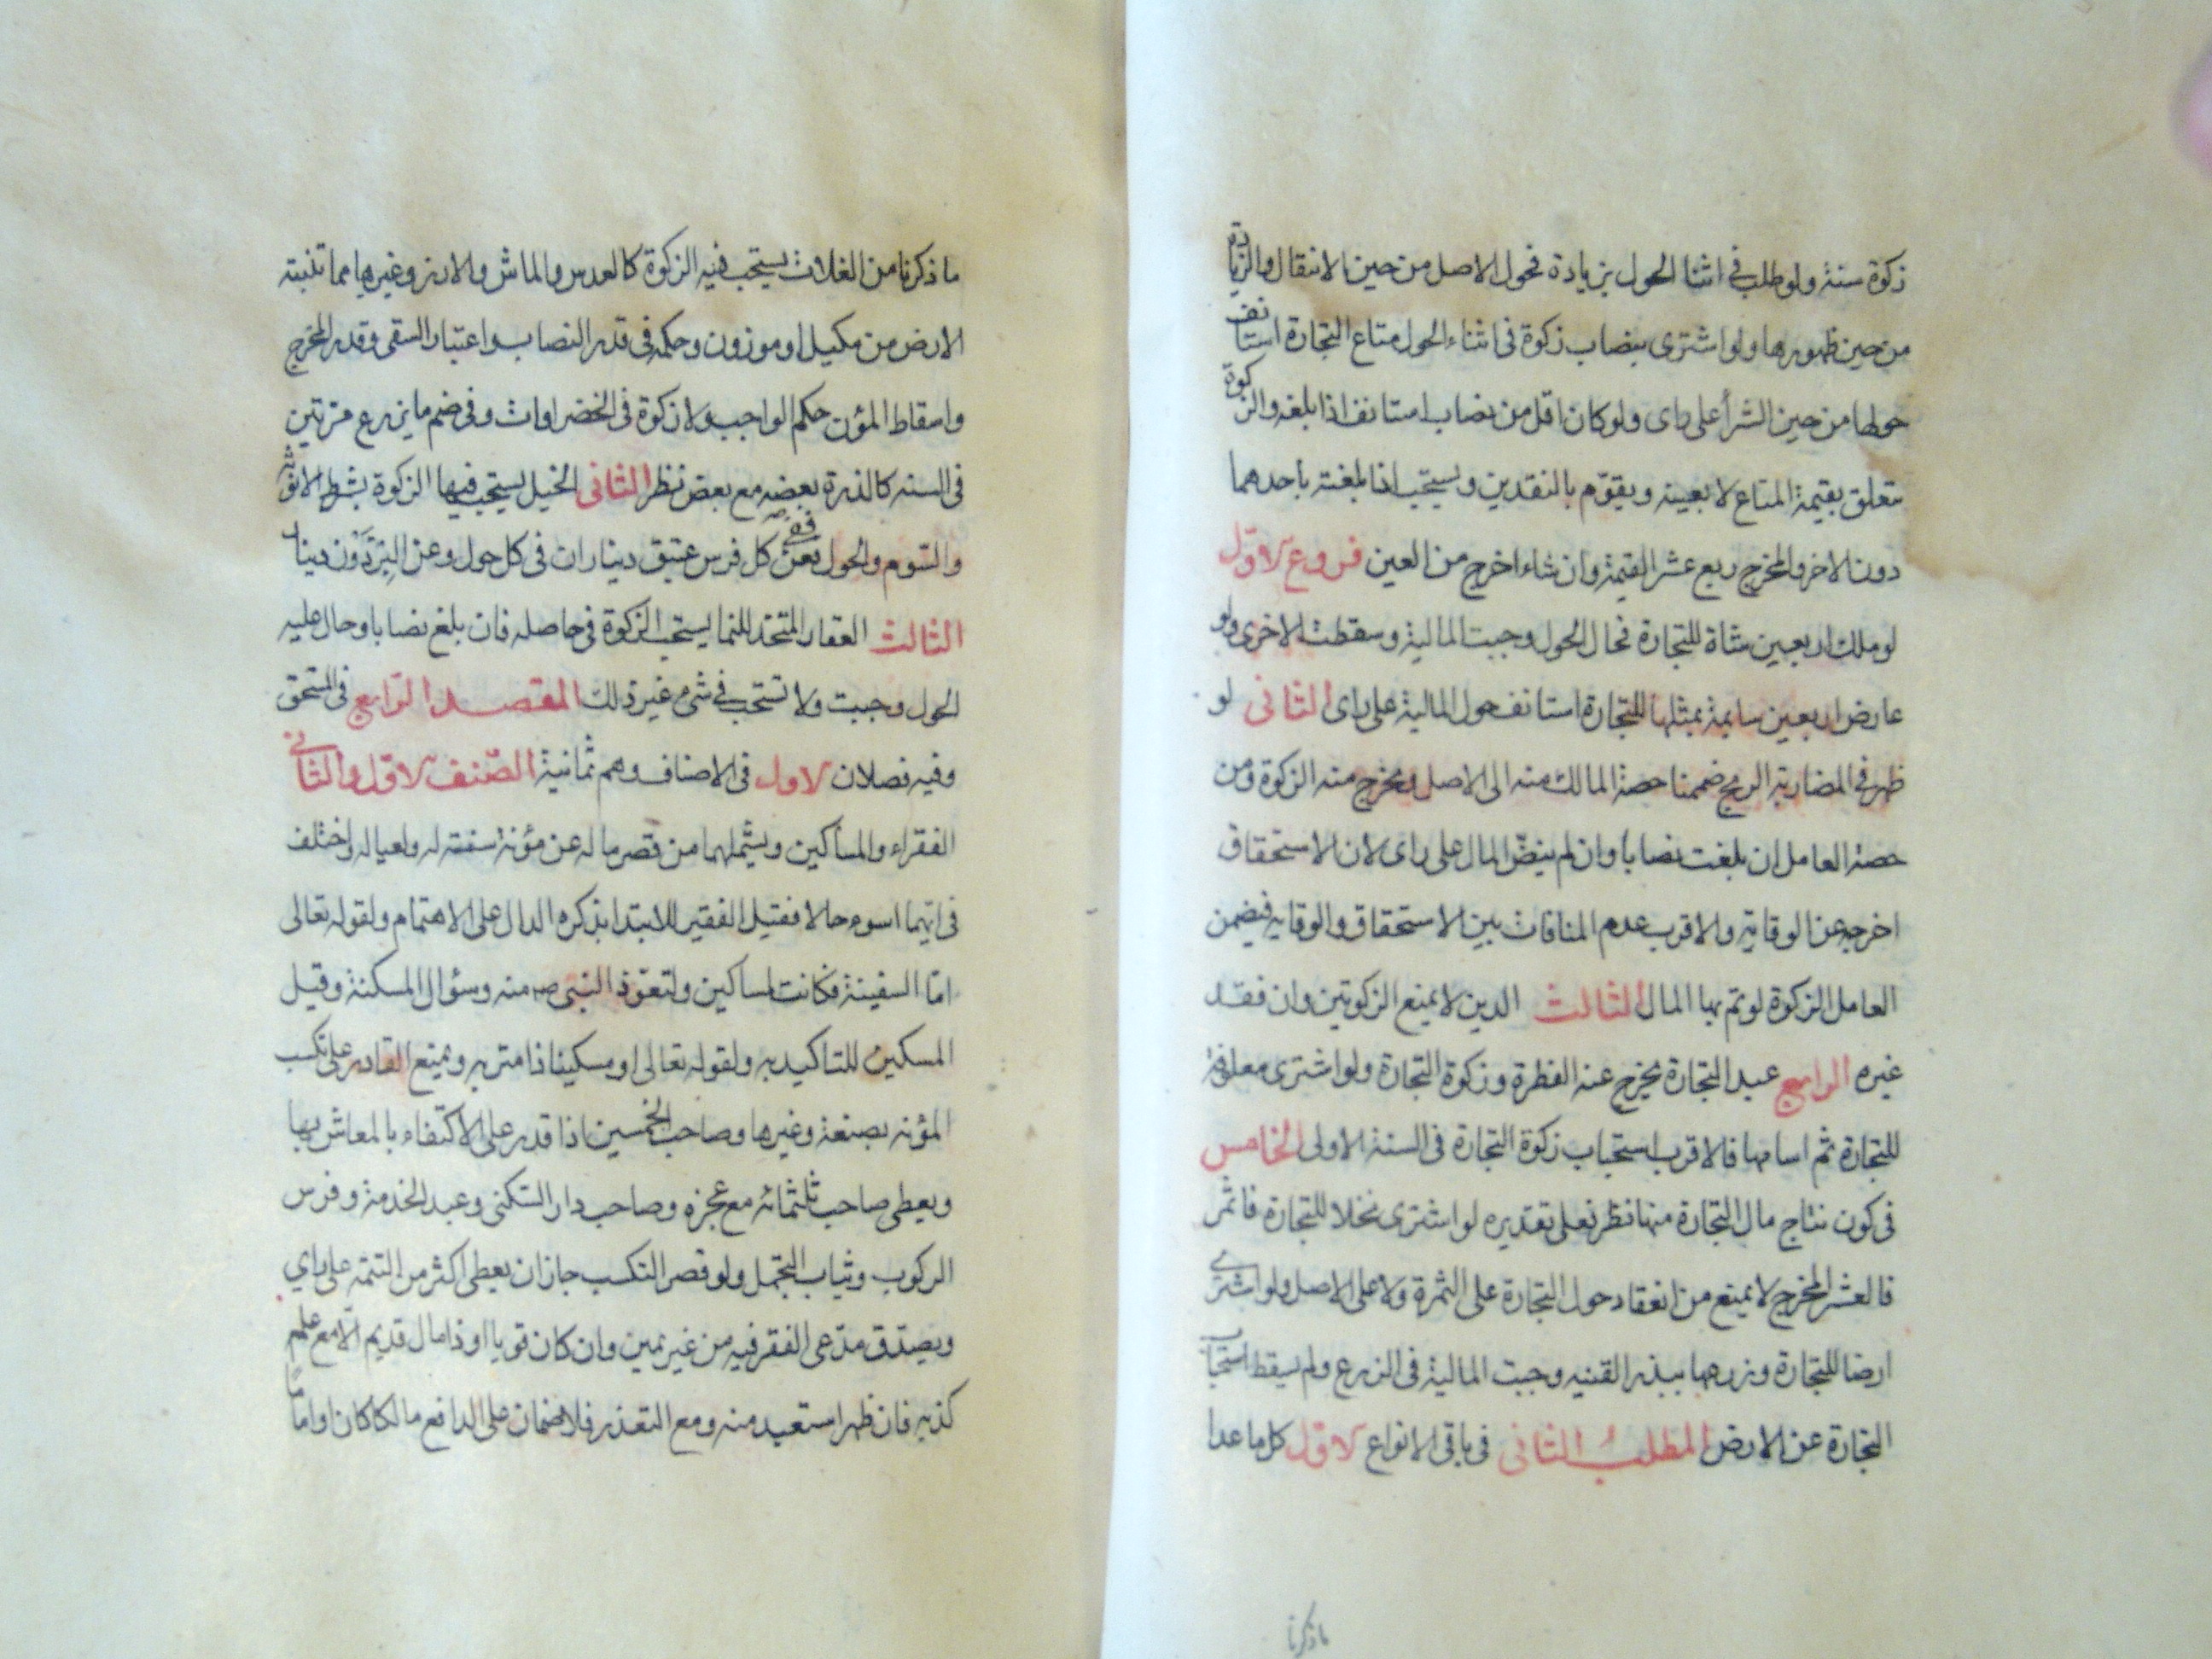 زكوة سنة ولو طلب فى اثنا الحول بزيادة فحول الاصل من حين الانتقال والزيادة
من حين ظهورها ولو اشترى بنصاب زكوة فى اثناء الحول متاع التجارة استانف
حولها من حين الشرأ على راى ولو كان اقل من نصاب استانف اذا بلغه والزكوة
تتعلق بقيمة المتاع لا بعينه ويقوّم بالنقدين ويستحب اذا بلغته باحدهما
دون الاخر والمخرج ربع عشر القيمة وان شاء اخرج من العين فروع الاوّل
لو ملك اربعين شاة للتجارة فحال الحول وجبت المالية وسقطت الاخرى ولو
عارض اربعين سايمة بمثلها للتجارة استانف حول المالية على راى الثانى لو
ظهر فى المضاربة الربح ضممنا حصة المالك منه الى الاصل ويخرج منه الزكوة ومن
حصة العامل ان بلغت نصابا وان لم ينضّ المال على راى لان الاستحقاق
اخرجه عن الوقاية والاقرب عدم المنافات بين الاستحقاق والوقايه فيضمن
العامل الزكوة لو تم بها المال الثالث الدين لا يمنع الزكوتين وان فقد
غيره الرابع عبد التجارة يخرج عنه الفطرة وزكوة التجارة ولو اشترى معلوفة
للتجارة ثم اسامها فالاقرب استحباب زكوة التجارة فى السنة الاولى الخامس
فى كون نتاج مال التجارة منها نظر فعلى تقديره لو اشترى نخلا للتجارة فاثمر
فالعشر المخرج لا يمنع من انعقاد حول التجارة على الثمرة ولا على الاصل ولو اشترى
ارضا للتجارة وزرعها ببذر القنيه وجبت المالية فى الزرع ولم يسقط استحباب
التجارة عن الارض المطلب الثانى فى باقى الانواع الاوّل كل ما عدا
ماذكرنا
ما ذكرنا من الغلات يستحب فيه الزكوة كالعدس والماش والارز وغيرها مما تنبته
الارض من مكيل او موزون وحكمه فى قدر النصاب واعتبار السقى وقدر المخرج
واسقاط المؤن حكم الواجب ولا زكوة فى الخضراوات وفى ضم ما يزرع مرّتين
فى السنه كالذرة بعضه مع بعض نظر الثانى الخيل يستحب فيها الزكوة بشرط الانوثة
والسّوم والحول فعن كل فرس عتيق ديناران فى كل حول وعن البرذون دينار
الثالث العقار المتخذ للنما يستحب الزكوة فى حاصله فان بلغ نصابا وحال عليه
الحول وجبت ولا تستحب فى شئ غير ذلك المقصد الرّابع فى المستحق
وفيه فصلان الاول فى الاصناف وهم ثمانية الصّنف الاوّل والثانى
الفقراء والمساكين ويشملهما من قصر ماله عن مؤنة سنته له ولعياله واختلف
فى ايّهما اسوء حالا فقيل الفقير للابتدا بذكره الدال على الاهتمام ولقوله تعالى
امّا السفينة فكانت لمساكين ولتعوّذ النبى ص منه وسؤال المسكنة وقيل
المسكين للتاكيد به ولقوله تعالى او مسكينا ذا متربه ويمنع القادر على تكسب
المؤنه بصنعة وغيرها وصاحب الخمسين اذا قدر على الاكتفاء بالمعاش بها
ويعطى صاحب ثلثمائه مع عجزه وصاحب دار السّكنى وعبد الخدمة وفرس
الركوب وثياب التجمل ولو قصر التكسب جاز ان يعطى اكثر من التتمّه على راي
ويصدّق مدّعى الفقر فيه من غير يمين وان كان قويا او ذا مال قديم الّا مع علم
كذبه فان ظهر استعيد منه ومع التعذر فلا ضمان على الدافع مالكا كان او اماما